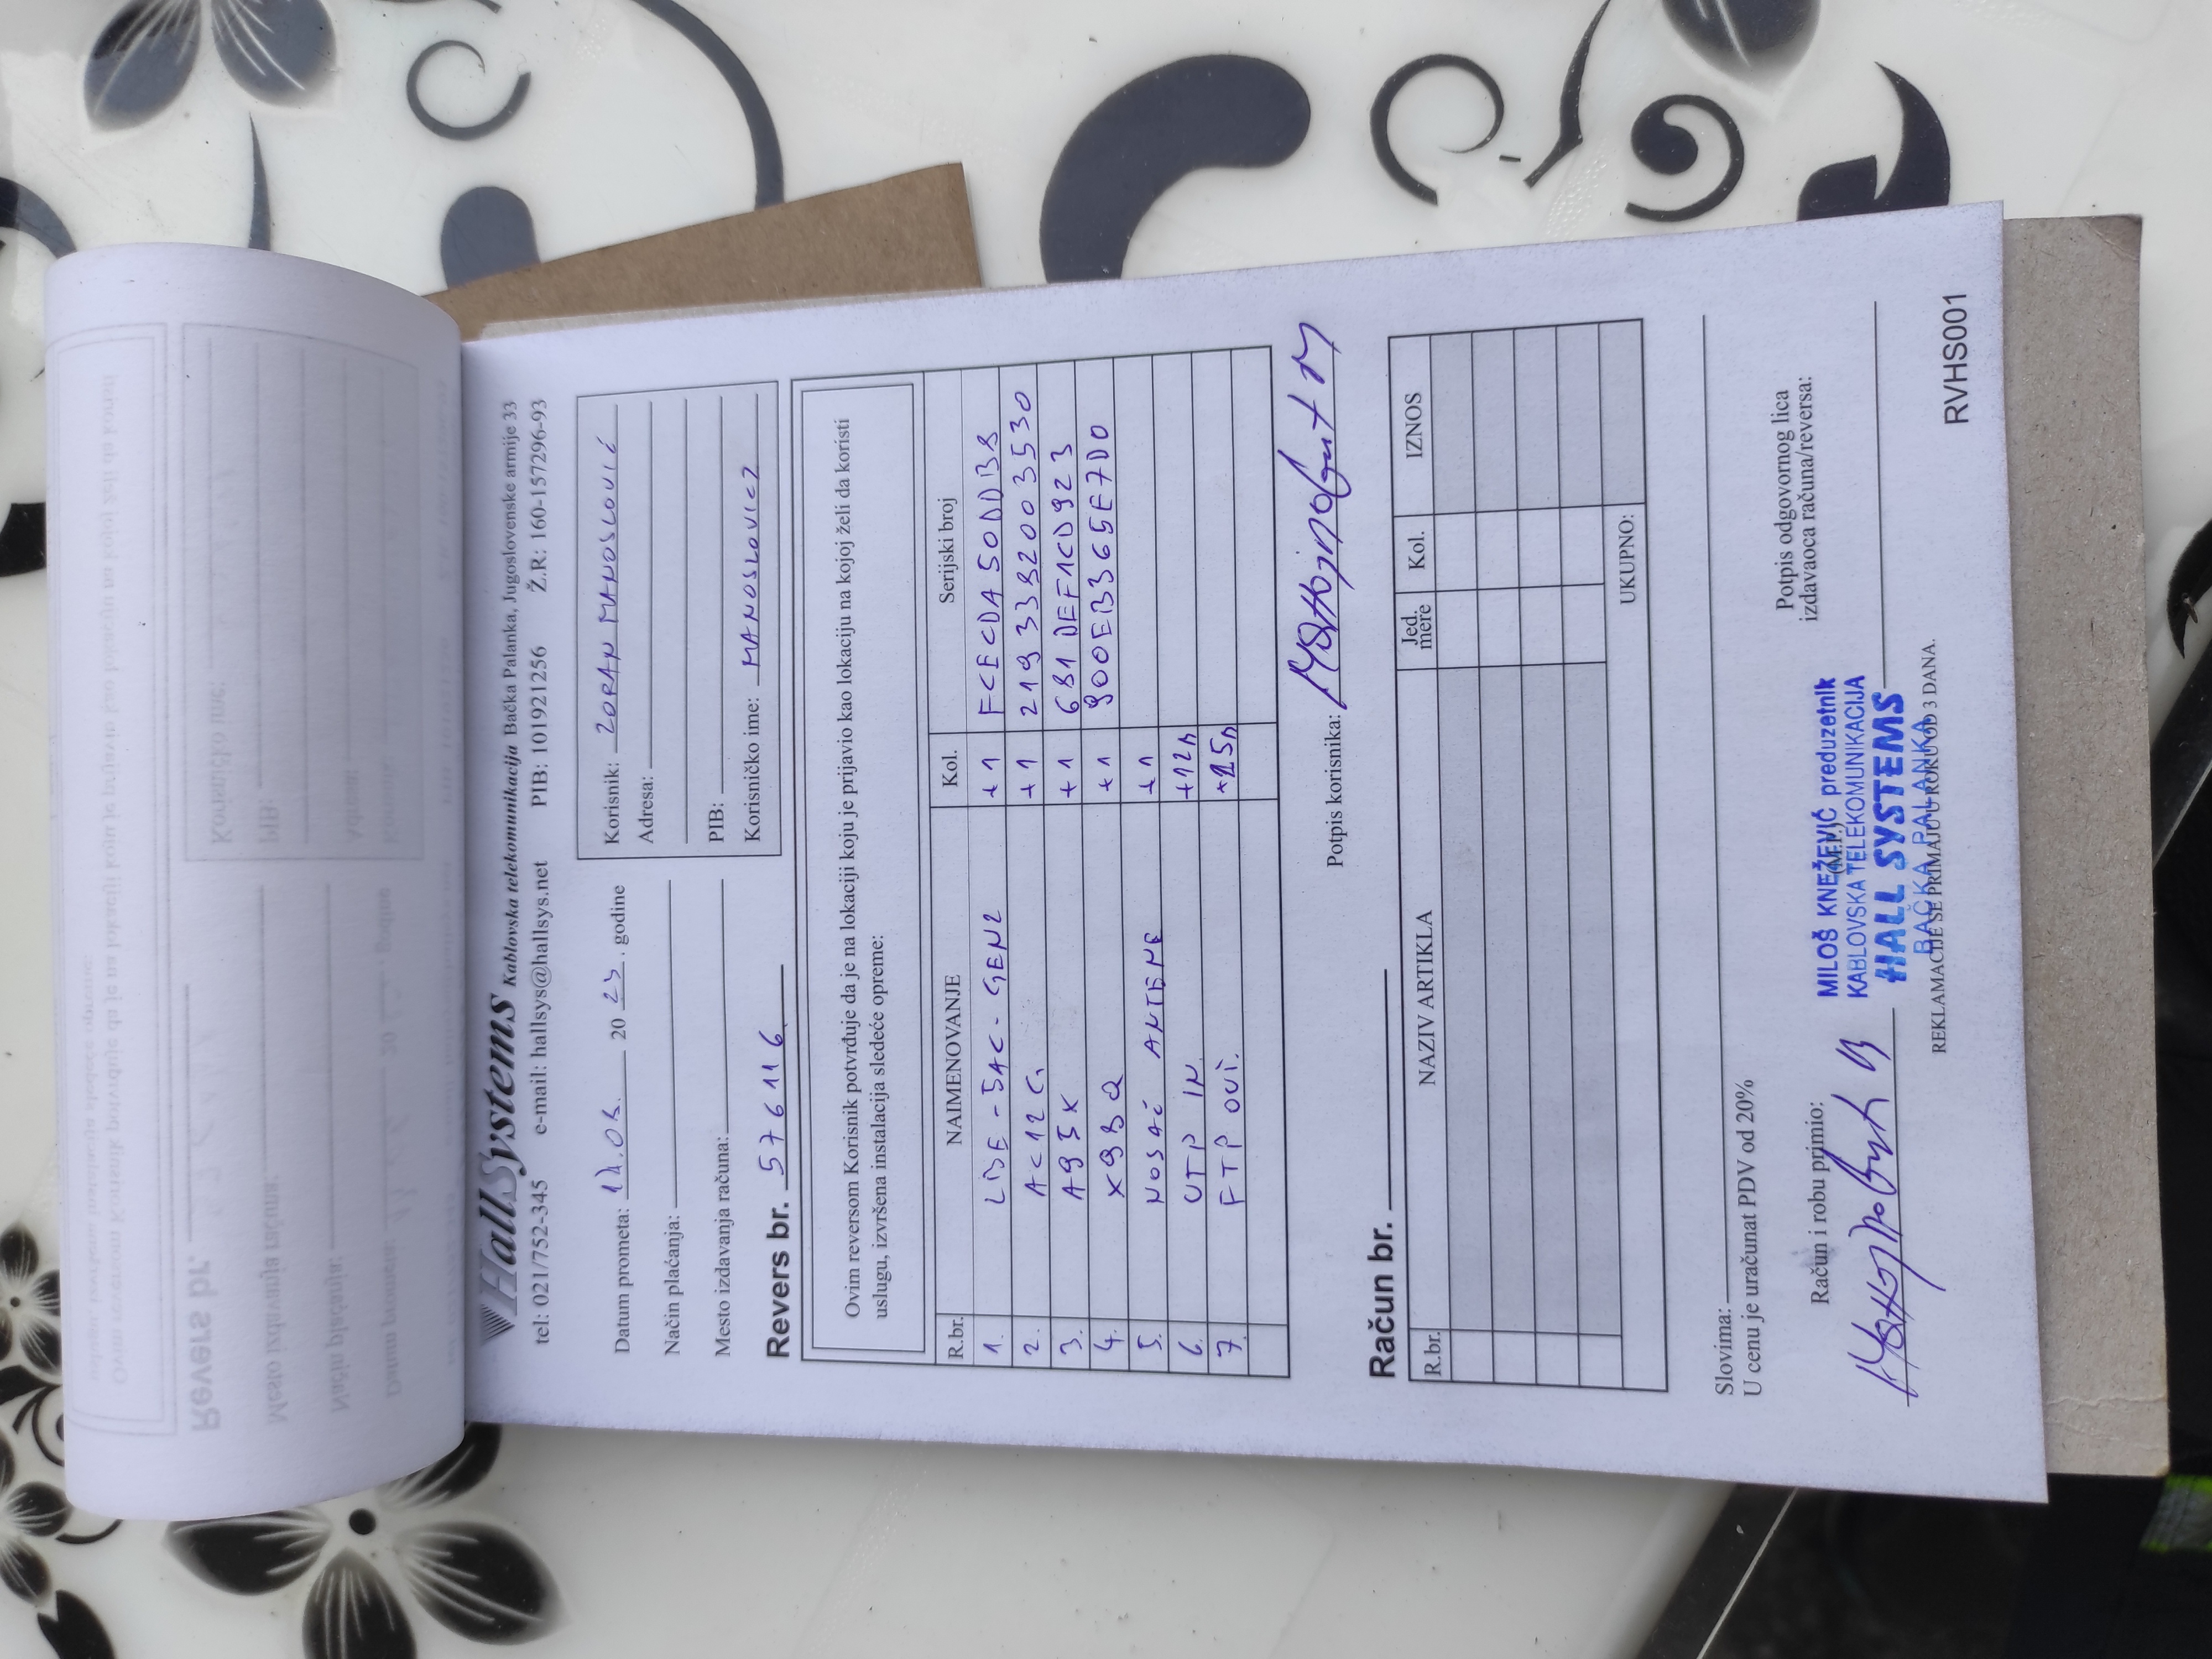 HallSystems Kablovska telekomunikacija Bačka Palanka, Jugoslovenske armije 33
tel: 021/752-345 e-mail: hallsys@hallsys.net PIB: 101921256 Ž.R: 160-157296-93
Datum prometa: 20 23. godine
Način plaćanja:
Mesto izdavanja računa:
Korisnik: ZORAN MANOSLOVIĆ
Adresa:
PIB:
Korisničko ime: MANOSLOVIC2
Revers br. 576116
Ovim reversom Korisnik potvrđuje da je na lokaciji koju je prijavio kao lokaciju na kojoj želi da koristi
uslugu, izvršena instalacija sledeće opreme:
R.br. NAIMENOVANJE Kol. Serijski broj
1. LBE-5AC-GEN2 +1
2. AC12G +1 2193382003530
3. A95X +1 681DEF1CD923
4. X98Q +1 900EB365E7D0
5. NOSAČ ANTENE +1
6. UTP IN +12m
7. FTP OUT.
Potpis korisnika:
Račun br.
R.br. NAZIV ARTIKLA Jed. mere Kol. IZNOS
UKUPNO:
Slovima:
U cenu je uračunat PDV od 20%
Račun i robu primio:
(M.P.)
Potpis odgovornog lica
izdavaoca računa/reversa:
MILOŠ KNEŽEVIĆ preduzetnik
KABLOVSKA TELEKOMUNIKACIJA
HALL SYSTEMS
BAČKA PALANKA
REKLAMACIJE SE PRIMAJU U ROKU OD 3 DANA.
RVHS001